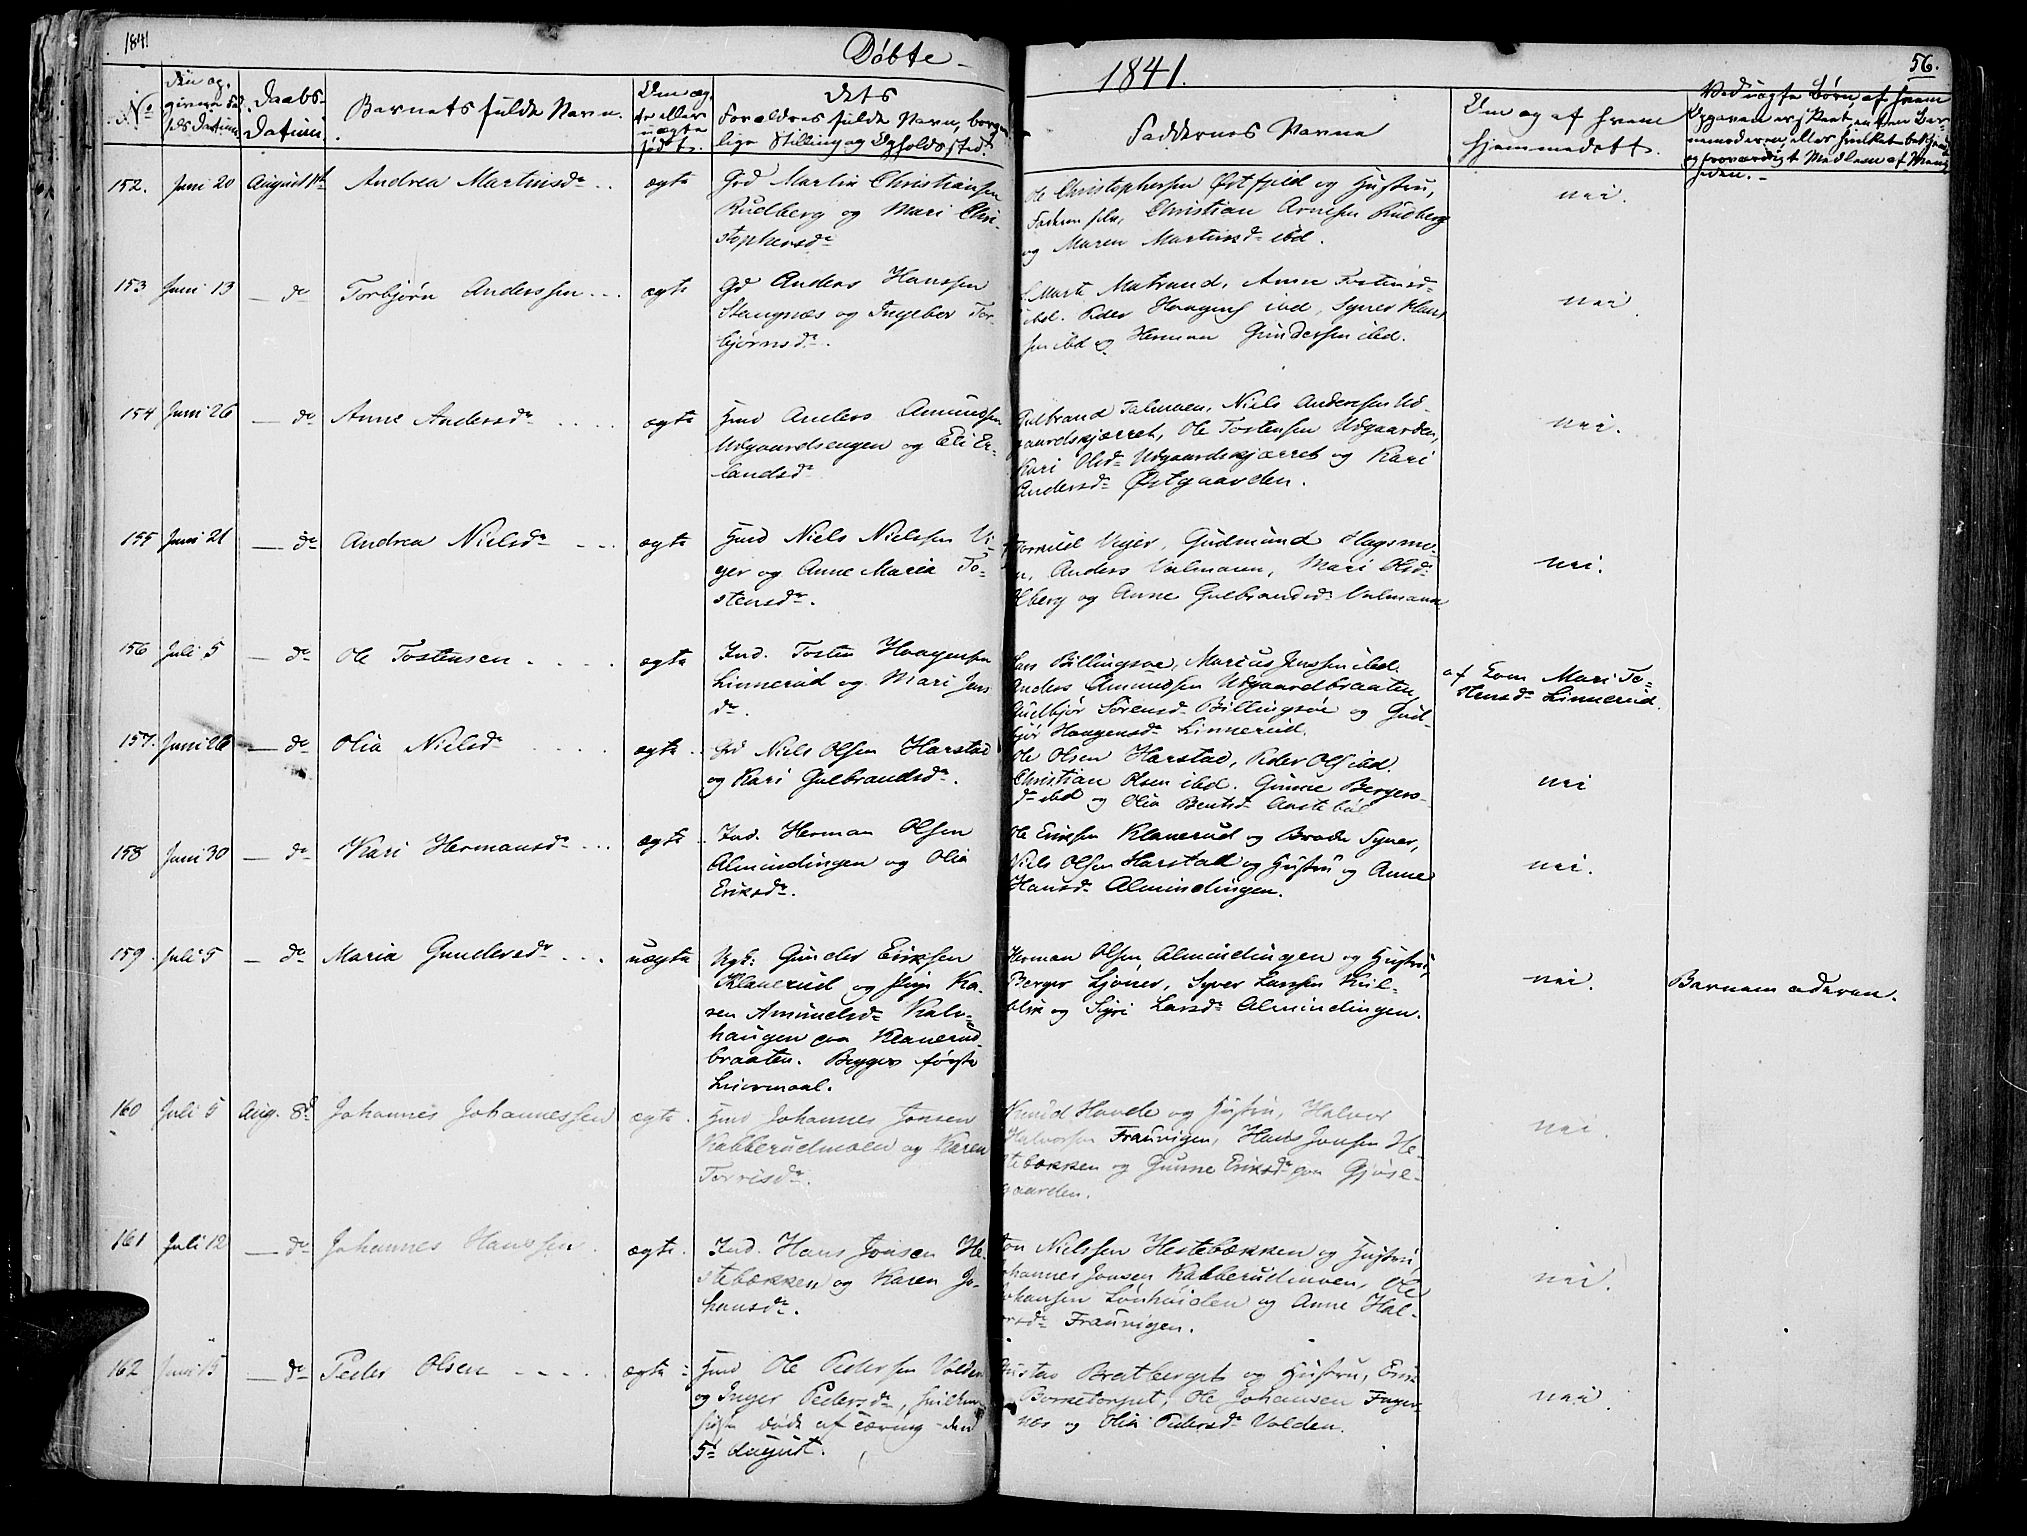 1841
Døbte
1841.
56.
No
Daabs-
Datum
Barnets fulde Navn.
Om æg-
te eller
uægte
født.
Dets
Forældres fulde Navn, borger-
lige Stilling og Opholdssted.
Faddernes Navne
Om og af hvem
hjemmedøbt.
Ved uægte Børn, af hvem
Opgaven er skeet, enten Bar-
nemoderen, eller hvilket bekjendt
og troværdigt Medlem af Menig-
heden.
152. Juni 20 August 1ste Andrea Martinsdr ægte
Grd Martin Christiansen
Rudberg og Mari Chri-
stophersdr
Ole Christophersen Østfjeld og Hustru,
Faderen selv, Christian Arnesen Rudberg
og Maren Martinsdr ibd.
nei.
153 Juni 13 — do Torbjørn Anderssen ægte
Gd Anders Hanssen
Stangnæs og Ingebor Tor-
bjørnsdr.
Marte Matrand, Anne Tostensdr
ibd. Peder Haagens ibd, Syver Hans-
sen ibd og Herman Gundersen ibd.
nei.
154 Juni 26 — do Anne Andersdr ægte
Hmd Anders Amundsen
Udgaardsengen og Eli Er-
landsdr
Gulbrand Talmoen, Niels Anderssen Ud-
gaardskjærret, Ole Tostensen Udgaarden,
Kari Olsdr Udgaardskjærret og Kari
Andersdr Østgaarden.
nei.
155 Juni 21 — do Andrea Nielsdr ægte
Hmd Niels Nielssen Vi-
ger og Anne Maria To-
stensdr.
Viger, Gudmund Hagsmo-
en, Anders Valmann, Mari Olsdr
berg og Anne Gulbrandsdr Valmann
nei.
156 Juli 5 — do Ole Tostensen ægte
Ind. Tosten Haagensen
Linnerud og Mari Jens
dr.
Lars Billingsøe, Marius Jenssen ibd.
Anders Amundsen Udgaardbraaten,
Gudbjør Sørensdr Billingsøe og Gud-
bjør Haagensdr Linnerud.
af Tom Mari To-
stensdr Linnerud.
157. Juni 26 — do Olia Nielsdr ægte.
Gd Niels Olsen Harstad
og Kari Gulbrandsdr.
Ole Olsen Harstad, Peder Ols ibd.
Christian Olsen ibd. Gunne Bergers-
dr ibd og Olia Berntsdr Aastebøl
nei
158 Juni 30 — do Kari Hermansdr ægte
Ind. Herman Olsen
Almindingen og Olia
Eriksdr.
Ole Eriksen Klanerud og Broder Syver,
Niels Olsen Harstad og Hustru og Anne
Hansdr Almindingen.
nei.
159 Juli 5 — do Maria Gundersdr uægte
Ugk: Gunder Eriksen
Klanerud og Pige Ka-
ren Amundsdr Kalv-
haugen paa Klanerud-
braaten. Begges første
Leiermaal.
Herman Olsen Almindingen og Hustru,
Berger Sjøner, Syver Larssen Kul-
blik og Siri Larsdr Almindingen.
nei.
Barnemoderen.
160 Juli 5 Aug. 8d Johannes Johannessen ægte.
Hmd Johannes Jonsen
Kabberudmoen og Karen
Torrisdr.
Knud Hovde og Hustru, Halvor
Halvorsen Frauvigen, Hans Jonsen He-
stebækken og Gunne Eriksdr paa Gjøse-
gaarden.
nei.
161 Juli 12 — do Johannes Hanssen ægte.
Ind. Hans Jonsen He-
stebækken og Karen Jo-
hansdr.
Jon Nielssen Hestebækken og Hustru,
Johannes Jonsen Kabberudmoen, Ole
Johansen Lønhøiden og Anne Hal-
vorsdr Frauvigen.
nei.
162 Juni 15 — do Peder Olsen ægte
Hmd Ole Pedersen Volden
og Inger Pedersdr, hvilken
sidste døde af Tæring den
5te August.
Gustav Bratberget og Hustru, Erik
Borketorpet, Ole Johansen Fager-
nes og Olia Pedersdr Volden.
nei.